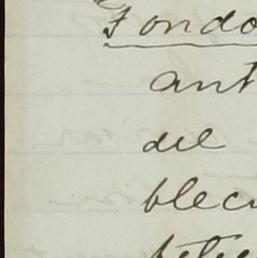 Fondo
ant
del
blec